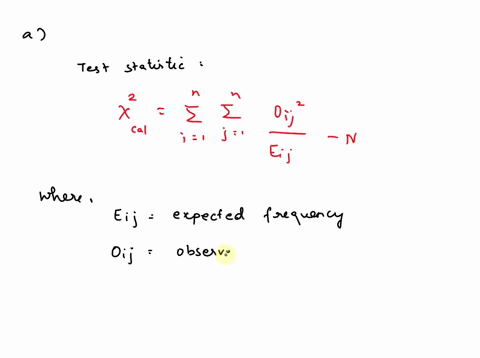 a)
Test statistic :
χ²cal = n∑i=1 n∑j=1 Oij² / Eij − N
Where,
Eij = expected frequency
Oij = observe